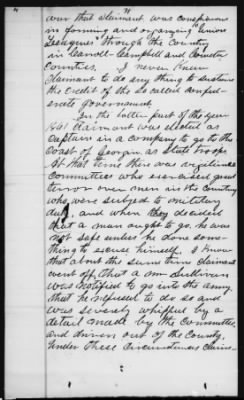 war that claimant was conspicuous
in forming and organizing Union
Leagues through the Country
in Carroll - Campbell and Coweta
Counties. never knew
Claimant to do any thing to sustain
the credit of the So called confed-
erate government.
In the latter part of the year
1861 Claimant was elected as
Captain in a company to go to the
Coast of Georgia as State troops
At that time there was vigilence
Committees who exercised great
terror over men in the country
who were subject to military
duty, and when they decided
that a man ought to go. he was
not safe unless he done some-
thing to excuse himself. I know
that about the same time claimant
went off, that a mr Sullivan
was notified to go into the army
that he refused to do so and
was severely whipped by a
detail made by the Committee
and driven out of the County.
Under these Circumstances Claim-